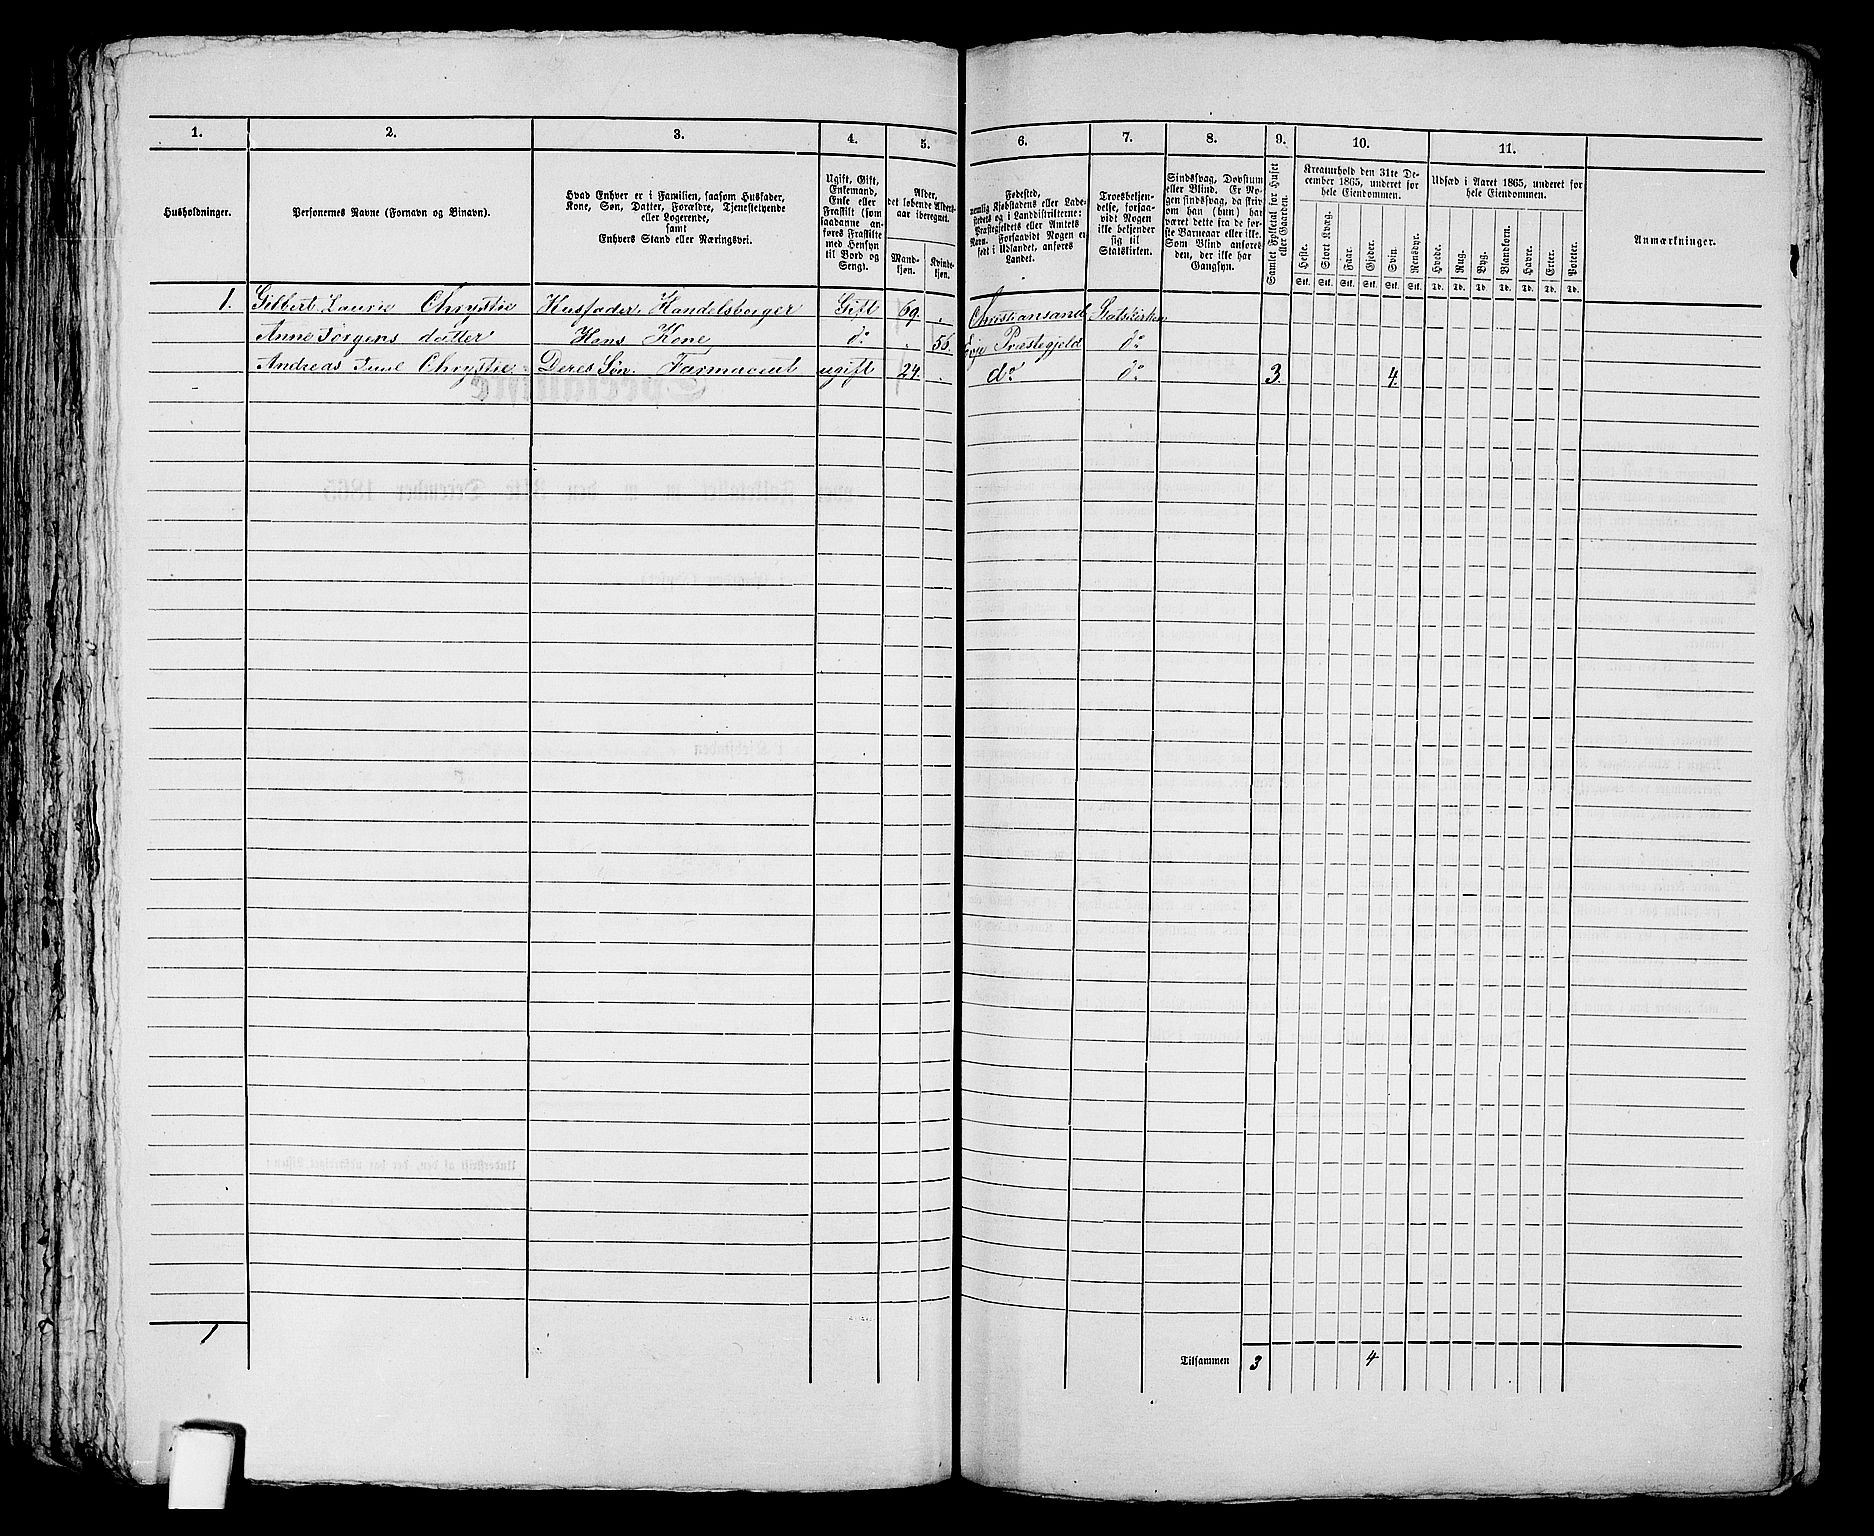 1. 2. 3. 4. 5. 6. 7. 8. 9. 10. 11.
Husholdninger.
Personernes Navne (Fornavn og Binavn).
Hvad Enhver er i Familien, saasom Husfader,
Kone, Søn, Datter, Forældre, Tjenestetyende
eller Logerende,
samt
Enhvers Stand eller Næringsvei.
Ugift, Gift,
Enkemand,
Enke eller
Fraskilt (som
saadanne an-
føres Fraskilte
med Hensyn
til Bord og
Seng).
Alder,
det løbende Alders-
aar iberegnet.
Mand-
kjøn.
Kvinde-
kjøn.
Fødested,
nemlig Kjøbstadens eller Lade-
stedets og i Landdistrikterne:
Præstegjeldets eller Amtets
Navn. Forsaavidt Nogen er
født i Udlandet, anføres
Landet.
Troesbekjen-
delse, forsaa-
vidt Nogen
ikke bekjender
sig til
Statskirken.
Sindssvag, Døvstum
eller Blind. Er No-
gen sindssvag, da skriv
om han (hun) har
været dette fra de før-
ste Barneaar eller ikke.
Som Blind anføres
den, der ikke har
Gangsyn.
Samlet Folketal for Huset
eller Gaarden.
Kreaturhold den 31te De-
cember 1865, underet for
hele Eiendommen.
Heste. Stort Kvæg. Faar. Gjeder. Svin. Rensdyr.
Stk. Stk. Stk. Stk. Stk. Stk.
Udsæd i Aaret 1865, underet for
hele Eiendommen.
Hvede. Rug. Byg. Blandkorn. Havre. Erter. Poteter.
Td. Td. Td. Td. Td. Td. Td.
Anmærkninger.
1. Gilbert Laurie Chrystie Husfader. Handelsborger Gift 69. . Christiansand Statskirken
Anne Jørgens datter Hans Kone do . 56. Evje Præstegjeld do
Andreas Juul Chrystie Deres Søn. Farmaceut ugift 24. . do do 3. 4.
1
Tilsammen 3 4